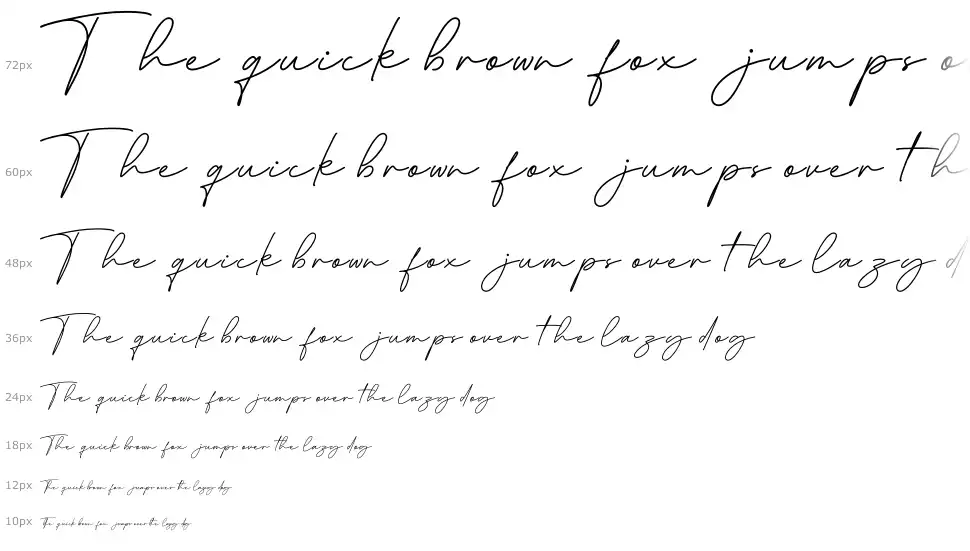 72px The quick brown fox jumps o
60px The quick brown fox jumps over th
48px The quick brown fox jumps over the lazy d
36px The quick brown fox jumps over the lazy dog
24px The quick brown fox jumps over the lazy dog
18px The quick brown fox jumps over the lazy dog
12px The quick brown fox jumps over the lazy dog
10px The quick brown fox jumps over the lazy dog